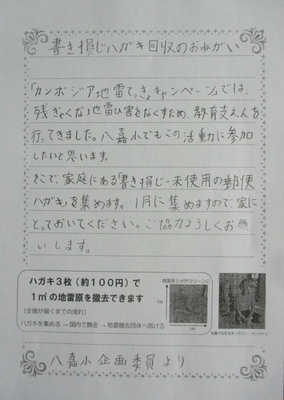 書き損じハガキ回収のおねがい
「カンボジア地雷てっきょキャンペーン」では、
残ぎゃくな地雷ひ害をなくすため、教育支えんを
行ってきました。八嘉小でもこの活動に参加
したいと思います。
そこで、家庭にある「書き損じ・未使用の郵便
ハガキ」を集めます。1月に集めますので、家に
とっておいてください。ご協力よろしくお願
いします。
ハガキ3枚(約100円)で
1㎡の地雷原を撤去できます
(支援が届くまでの流れ)
ハガキを集める → 国内で換金 → 地雷撤去団体へ届ける
地雷原1㎡がクリーンに
1m
八嘉小企画委員より